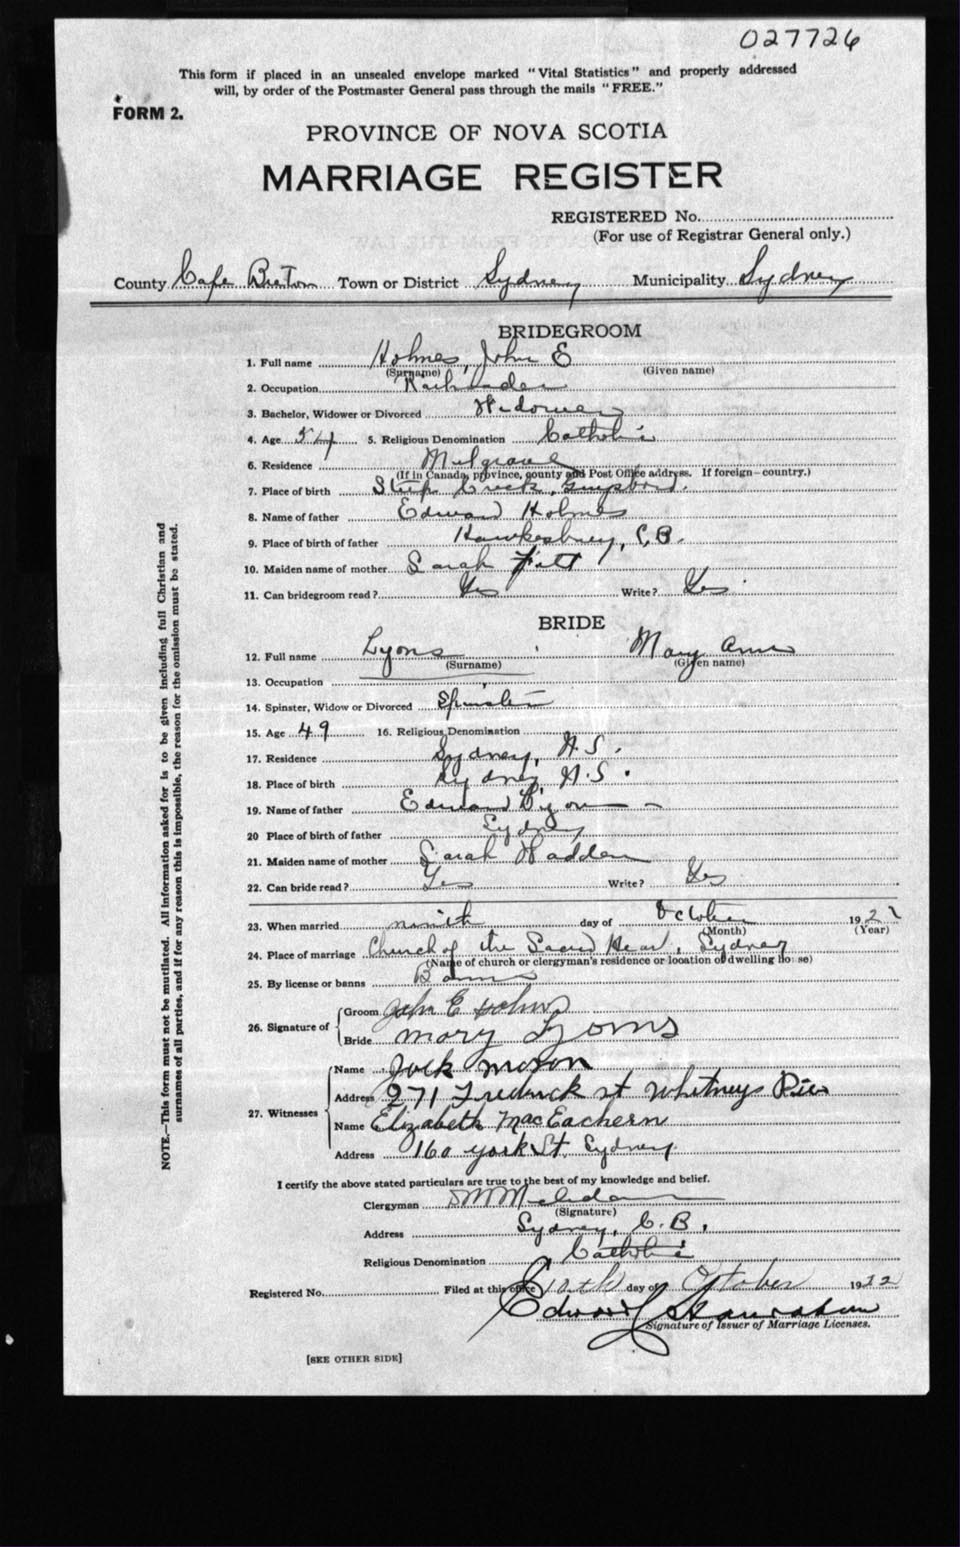 027726
This form if placed in an unsealed envelope marked "Vital Statistics" and properly addressed
will, by order of the Postmaster General pass through the mails "FREE."
FORM 2.
PROVINCE OF NOVA SCOTIA
MARRIAGE REGISTER
REGISTERED No.
(For use of Registrar General only.)
County Cape Breton Town or District Sydney Municipality Sydney
BRIDEGROOM
1. Full name Holmes, John E
(Surname) (Given name)
2. Occupation
3. Bachelor, Widower or Divorced Widower
4. Age 54 5. Religious Denomination Catholic
6. Residence Mulgrave
(If in Canada, province, county and Post Office address. If foreign—country.)
7. Place of birth Steep Creek, Guysboro.
8. Name of father Edward Holmes
9. Place of birth of father Hawkesbury, C.B.
10. Maiden name of mother Sarah
11. Can bridegroom read? Yes Write? Yes
BRIDE
12. Full name Lyons Mary Ann
(Surname) (Given name)
13. Occupation
14. Spinster, Widow or Divorced Spinster
15. Age 49 16. Religious Denomination
17. Residence Sydney, N.S.
18. Place of birth Sydney N.S.
19. Name of father Edward Lyons
20 Place of birth of father Sydney
21. Maiden name of mother Sarah Hadden
22. Can bride read? Yes Write? Yes
23. When married ninth day of October 1922
(Month) (Year)
24. Place of marriage Church of the Sacred Heart, Sydney
(Name of church or clergyman's residence or location of dwelling house)
25. By license or banns Banns
26. Signature of Groom John E Holmes
Bride Mary Lyons
27. Witnesses Name Jack
Address 271 Frederick st Whitney Pier
Name Elizabeth MacEachern
Address 160 York St. Sydney
I certify the above stated particulars are true to the best of my knowledge and belief.
Clergyman
(Signature)
Address Sydney, C.B.
Religious Denomination Catholic
Registered No. Filed at this office day of October 1922
Edward
Signature of Issuer of Marriage Licenses.
[SEE OTHER SIDE]
NOTE.—This form must not be mutilated. All information asked for is to be given including full Christian and
surnames of all parties, and if for any reason this is impossible, the reason for the omission must be stated.